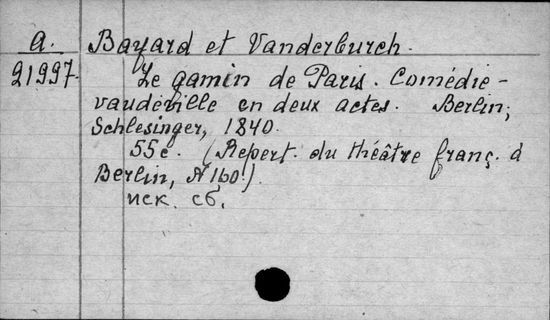 a. Bayard et Vanderburch.
21997. Le gamin de Paris. Comédie-
vaudeville en deux actes. Berlin,
Schlesinger, 1840.
55c. (Repert. du théâtre franç. à
Berlin, N 160.)
иск. сб.